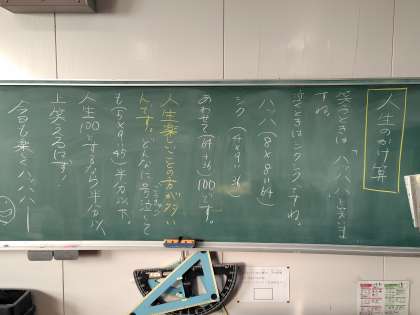 人生のかけ算
笑うときは「ハッハッハ」と笑います
よね。
泣くときはシクシクですね。
ハッハ(8×8=64)
シク(4×9=36)
あわせて(64+36)100です。
人生楽しいことの方が多い
んです。どんなに号泣して
も(5×9=45)半分以下。
人生100とするなら半分以
上笑えるはず!
今日も楽しくハッハッハー